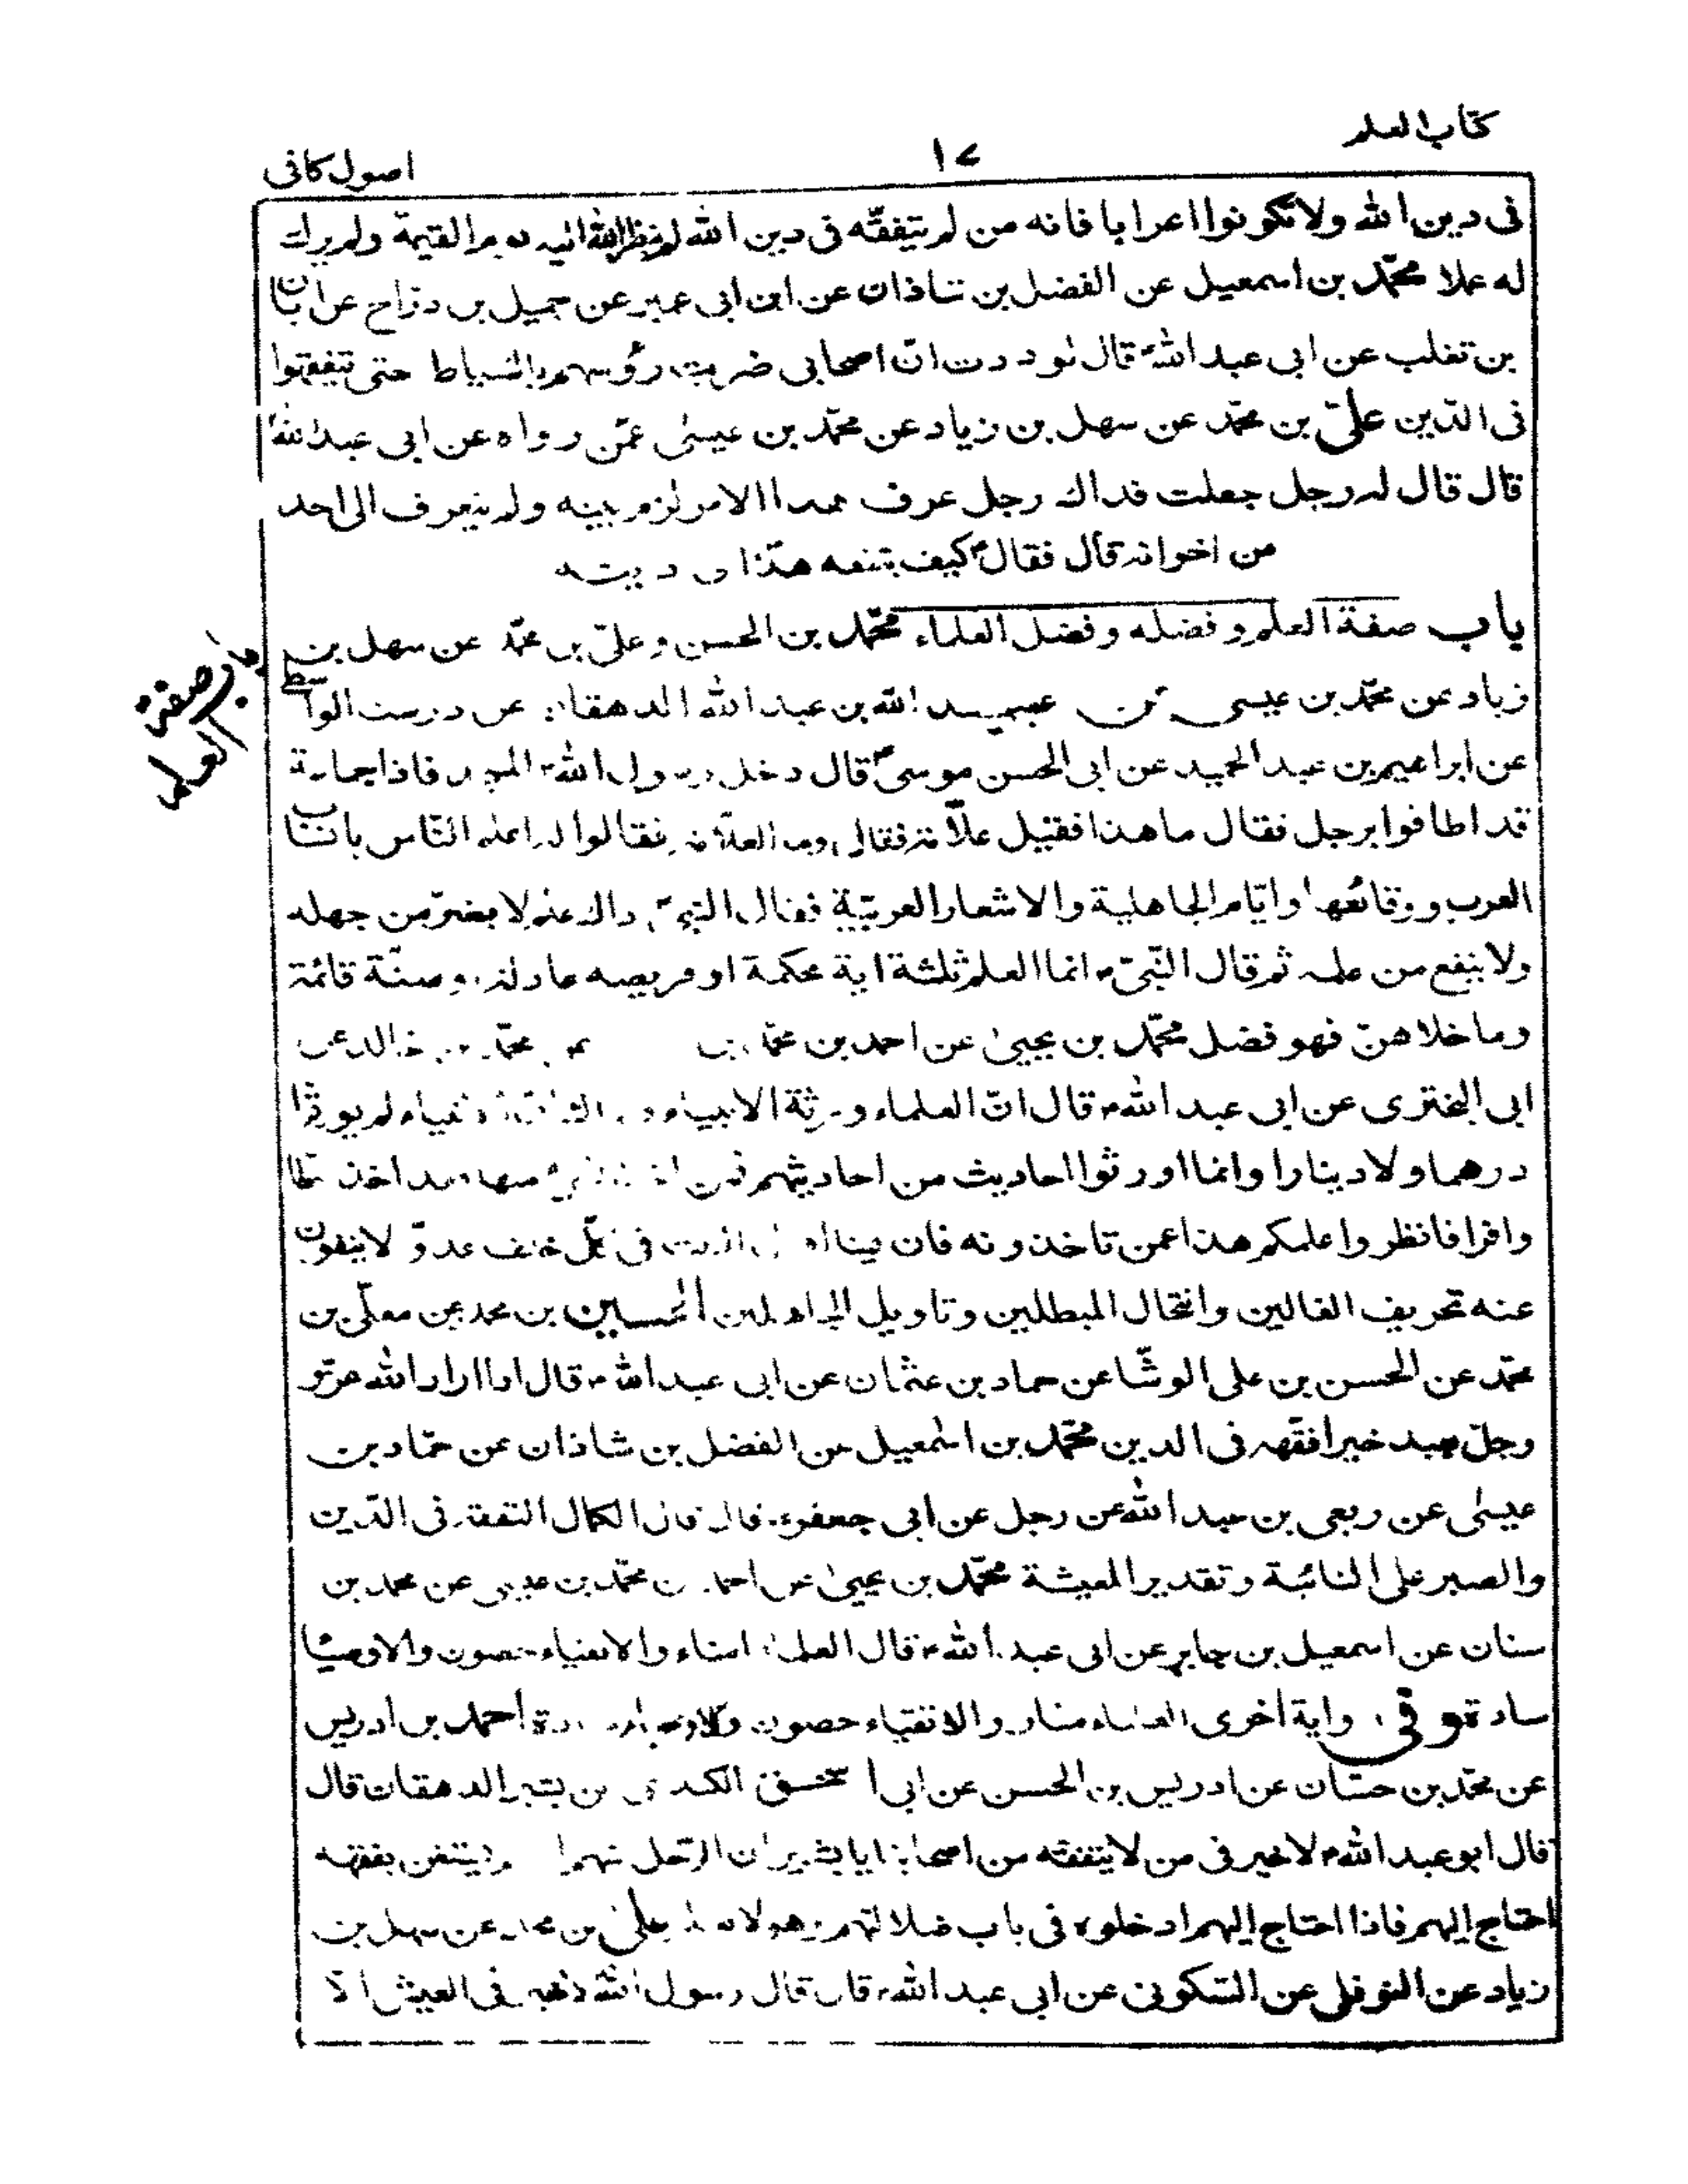 كتاب العلم
١٧
اصول كافى
فى دين الله ولا تكونوا اعرابا فانه من لم يتفقّه فى دين الله لم ينظر الله اليه يوم القيمة ولم يزك
له عملا محمّد بن اسمعيل عن الفضل بن شاذان عن ابن ابى عمير عن جميل بن دراج عن ابان
بن تغلب عن ابى عبد الله ع قال لوددت انّ اصحابى ضربت رؤسهم بالسياط حتى يتفقهوا
فى الدّين علىّ بن محمّد عن سهل بن زياد عن محمّد بن عيسى عمّن رواه عن ابى عبد الله ع
قال قال له رجل جعلت فداك رجل عرف هذا الامر لزم بيته ولم يتعرف الى احد
من اخوانه قال فقال ع كيف يتفقه هذا فى دينه
باب صفة العلم و فضله و فضل العلماء محمّد بن الحسن و علىّ بن محمّد عن سهل بن
باب صفة
العلم
زياد عن محمّد بن عيسى عن عبيد الله بن عبد الله الدهقان عن درست الواسطى
عن ابراهيم بن عبد الحميد عن ابى الحسن موسى ع قال دخل رسول الله المسجد فاذا جماعة
قد اطافوا برجل فقال ما هذا فقيل علّامة فقال وما العلّامة فقالوا له اعلم النّاس بانساب
العرب و وقائعها و ايّام الجاهلية والاشعار العربيّة فقال النبى ذاك علم لا يضرّ من جهله
ولا ينفع من علمه ثم قال النّبىّ انما العلم ثلثة اية محكمة او فريضه عادلة او سنّة قائمة
وما خلا هنّ فهو فضل محمّد بن يحيى عن احمد بن محمّد بن محمّد بن خالد عن
ابى البخترى عن ابى عبد الله قال انّ العلماء ورثة الانبياء الانبياء لم يورثوا
درهما ولا دينارا وانما اورثوا احاديث من احاديثهم فمن اخذ بشىء منها فقد اخذ حظا
وافرا فانظروا علمكم هذا عمن تاخذونه فان فينا اهل البيت فى كلّ خلف عدولا ينفون
عنه تحريف الغالين وانتحال المبطلين وتاويل الجاهلين الحسين بن محمد عن معلّى بن
محمّد عن الحسن بن على الوشّا عن حماد بن عثمان عن ابى عبد الله قال اذا اراد الله عزّ و
وجلّ بعبد خيرا فقّهه فى الدين محمّد بن اسمعيل عن الفضل بن شاذان عن حمّاد بن
عيسى عن ربعى بن عبد الله عن رجل عن ابى جعفر قال قال الكمال التفقه فى الدّين
والصبر على النائبة وتقدير المعيشة محمّد بن يحيى عن احمد بن محمّد بن عيسى عن محمد بن
سنان عن اسمعيل بن جابر عن ابى عبد الله قال العلماء امناء والاتقياء حصون والاوصيا
سادة وفى رواية اخرى العلماء منار والاتقياء حصون والاوصياء سادة احمد بن ادريس
عن محمّد بن حسّان عن ادريس بن الحسن عن ابى اسحق الكندى عن بشير الدهقان قال
قال ابو عبد الله لا خير فى من لا يتفقه من اصحابنا يا بشير ان الرّجل منهم اذا لم يستغن بفقهه
احتاج اليهم فاذا احتاج اليهم ادخلوه فى باب ضلالتهم وهو لا يعلم علىّ بن محمد عن سهل بن
زياد عن النوفلى عن السّكونى عن ابى عبد الله قال قال رسول الله لا خير فى العيش الّا